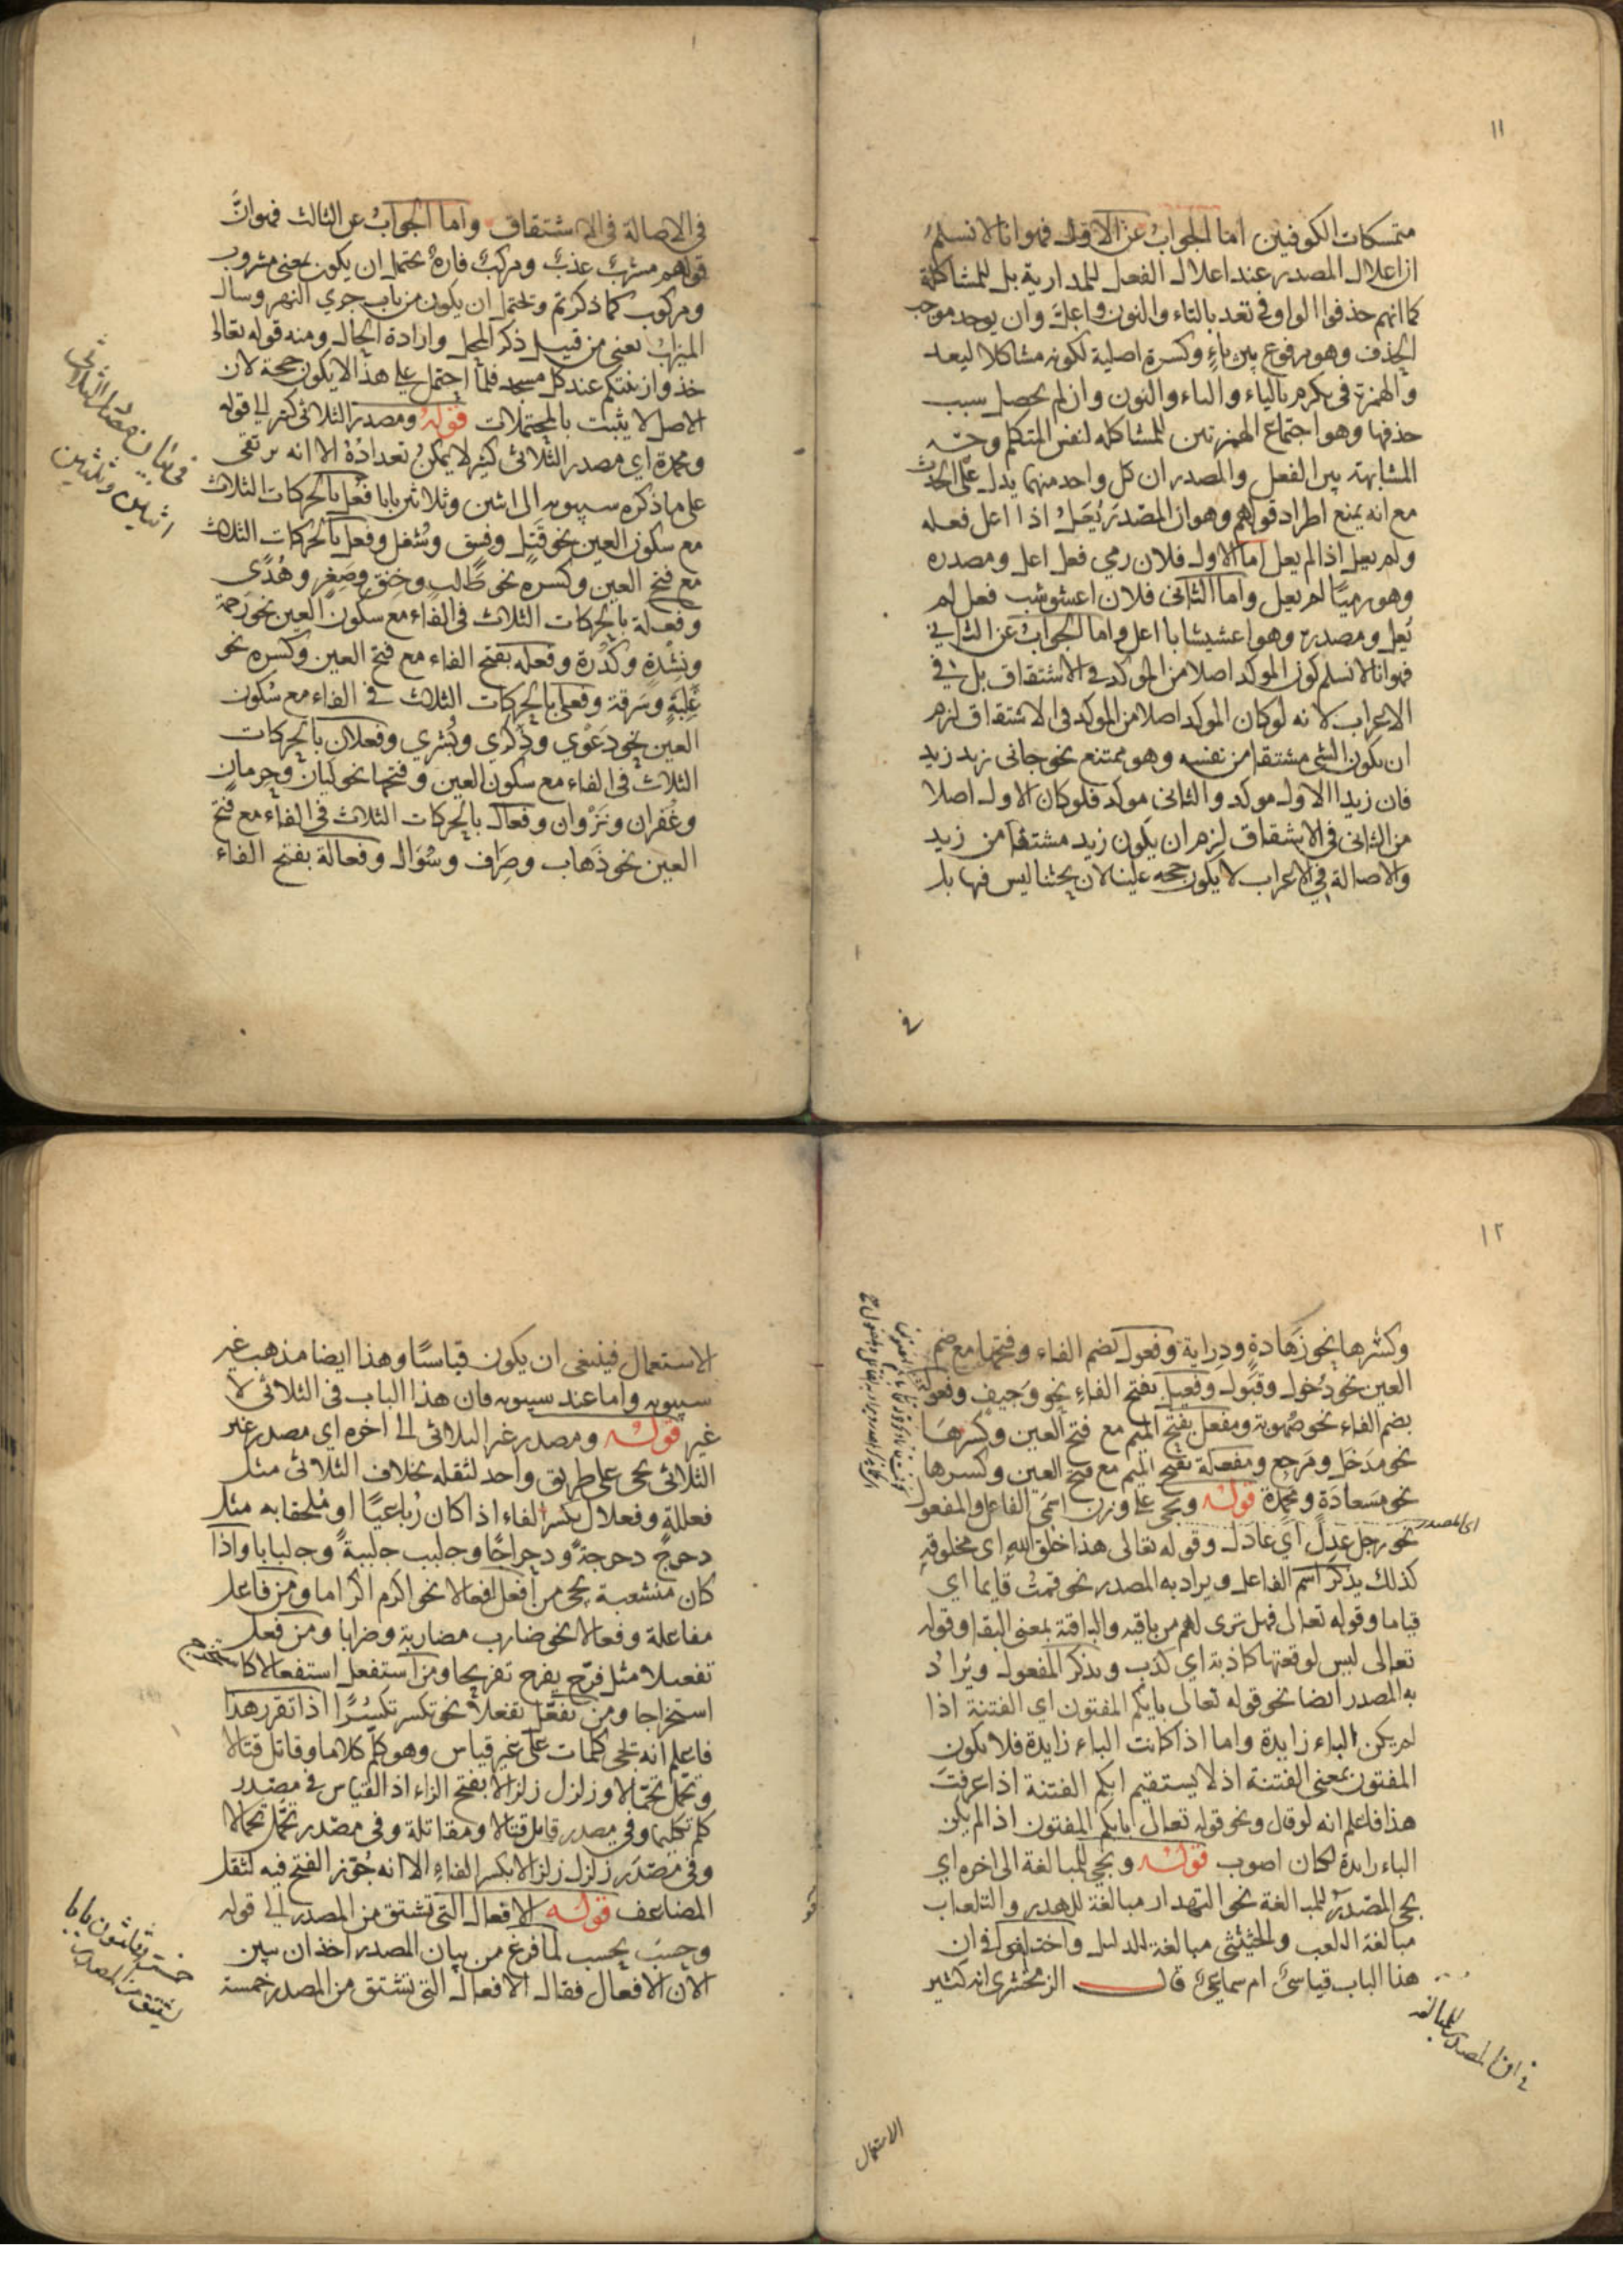 ١١
متمسكات الكوفيين اما الجواب عن الاول فهو انا لا نسلم
ان اعلال المصدر عند اعلال الفعل للمدارية بل للمشاكلة
كما انهم حذفوا الواو في تعد بالتاء والنون واعد وان يوجد موجب
الحذف وهو وقوع بين ياء وكسرة اصلية لكونه مشاكلا ليعد
والهمزة في يكرم بالياء والتاء والنون وان لم يحصل سبب
حذفها وهو اجتماع الهمزتين للمشاكله لنفس المتكلم وجه
المشابهة بين الفعل والمصدر ان كل واحد منهما يدل على الحدث
مع انه يمنع اطراد قولهم وهو ان المصدر يُعَلُ اذا اعل فعله
ولم يعل اذا لم يعل اما الاول فلان رمي فعل اعل ومصدره
وهو رميًا لم يعل واما الثاني فلان اعشوشب فعل لم
يُعل ومصدره وهو اعشيشابا اعل واما الجواب عن الثاني
فهو انا لا نسلم كون الموكد اصلا من الموكد في الاشتقاق بل في
الاعراب لانه لو كان الموكد اصلا من الموكد في الاشتقاق لزم
ان يكون الشي مشتقا من نفسه وهو ممتنع نحو جاني زيد زيد
فان زيدا الاول موكد والثاني موكد فلو كان الاول اصلا
من الثاني في الاشتقاق لزم ان يكون زيد مشتقا من زيد
والاصالة في الاعراب لا يكون حجه علينا لان بحثنا ليس فيها بل
في
في الاصالة في الاشتقاق واما الجواب عن الثالث فهو انَّ
قولهم مشربٌ عذبٌ ومركبٌ فارهٌ يحتمل ان يكون بمعنى مشروب
ومركوب كما ذكرتم ويحتمل ان يكون من باب جري النهر وسال
الميزاب يعني من قبيل ذكر المحل وارادة الحال ومنه قوله تعالى
خذوا زينتكم عند كل مسجد فلما احتمل على هذا لا يكون حجة لان
الاصل لا يثبت بالمحتملات قوله ومصدر الثلاثي كثير الى قوله
ومحمدة اي مصدر الثلاثي كثير لا يمكن تعدادُهُ الا انه يرتقي
على ما ذكره سيبويه الى اثنين وثلاثين بابا فعل بالحركات الثلاث
مع سكون العين نحو قَتل وفِسق وشُغل وفعل بالحركات الثلاث
مع فتح العين وكسره نحو طَلبٍ وخَنِقٍ وصِغرٍ وهُدًى
وفعلة بالحركات الثلاث في الفاء مع سكون العين نحو رَحمة
ونِشْدةٍ وكُدْرة وفعله بفتح الفاء مع فتح العين وكسره نحو
غَلَبةٍ وسَرِقة وفعلى بالحركات الثلاث في الفاء مع سكون
العين نحو دَعْوي وذِكْري وبُشري وفعلان بالحركات
الثلاث في الفاء مع سكون العين وفتحها نحو ليّان وحِرمان
وغُفران ونَزَوان وفعال بالحركات الثلاث في الفاء مع فتح
العين نحو ذَهاب وصِرَاف وسُؤال وفعالة بفتح الفاء
في بيان مصدر الثلاثي
اثنين وثلثين
١٢
وكسرها نحو زَهادةٍ ودِراية وفعول بضم الفاء وفتحها مع ضم
العين نحو دُخول وقبول وفعيل بفتح الفاء نحو وَجيفٍ وفعولة
بضم الفاء نحو صُهوبة ومفعل بفتح الميم مع فتح العين وكسرها
نحو مَدخَل ومَرجِع ومفعلة بفتح الميم مع فتح العين وكسرها
نحو مَسعادَة ومحمِدة قوله ويجي على وزن اسمَي الفاعل والمفعول
اي المصدر
نحو رجل عدلٌ اي عادل وقوله تعالى هذا خلق الله اي مخلوقه
كذلك يذكر اسم الفاعل ويراد به المصدر نحو قمتُ قايما اي
قياما وقوله تعالى فهل ترى لهم من باقيه والباقية بمعنى البقا وقوله
تعالى ليس لوقعتها كاذبة اي كذب ويذكر المفعول ويُرادُ
به المصدر ايضا نحو قوله تعالى بايكم المفتون اي الفتنة اذا
لم يكن الباء زايدة واما اذا كانت الباء زايدة فلا يكون
المفتون بمعنى الفتنة اذ لا يستقيم ايكم الفتنة اذا عرفتَ
هذا فاعلم انه لو قال ونحو قوله تعالى بايكم المفتون اذا لم يكن
الباء زايدة لكان اصوب قوله ويجي للمبالغة الى اخره اي
يجي المصدرُ للمبالغة نحو التهدار مبالغة للهدر والتلعاب
مبالغة اللعب والحثيثى مبالغة للدليل واختلفوا في ان
هذا الباب قياسيٌ ام سماعيٌ قال الزمخشري انه كثير
في ان المصدر للمبالغه
الاستعمال
الاستعمال فينبغي ان يكون قياسًا وهذا ايضا مذهب غير
سيبويه واما عند سيبويه فان هذا الباب في الثلاثي لا
غير قوله ومصدر غير الثلاثي الى اخره اي مصدر غير
الثلاثي يجي على طريق واحد لثقله بخلاف الثلاثي مثل
فعللةٍ وفعلال بكسر الفاء اذا كان رُباعيًا او مُلحقا به مثل
دحرج دحرجةً ودحراجًا وجلبب جلببةً وجلبابا واذا
كان منشعبة يجي من أفعل افعالا نحو اكرم اكراما ومن فاعل
مفاعلة وفعالا نحو ضارب مضاربة وضرابا ومن فعل
تفعيلا مثل فرّح يفرح تفريحا ومن استفعل استفعالا كاستخرج
استخراجا ومن تفعّل تفعلا نحو تكسر تكسُّرًا اذا تقرر هذا
فاعلم انه تجي كلمات على غير قياس وهو كلّم كلاما وقاتل قتالا
وتحمّل تحمّالا وزلزل زلزالا بفتح الزاء اذ القياس في مصدر
كلم تكليما وفي مصدر قاتل قتالا ومقاتلة وفي مصدر تحمَّل تحملا
وفي مصدَر زلزل زلزالا بكسر الفاء الا انه جُوّز الفتح فيه لثقل
المضاعف قوله الافعال التي تشتق من المصدر الى قوله
وحسبَ يحسب لما فرغ من بيان المصدر اخذ ان يبين
الان الافعال فقال الافعال التي تشتق من المصدر خمسة
خمسة وثلاثون بابا
يشتق من المصدر